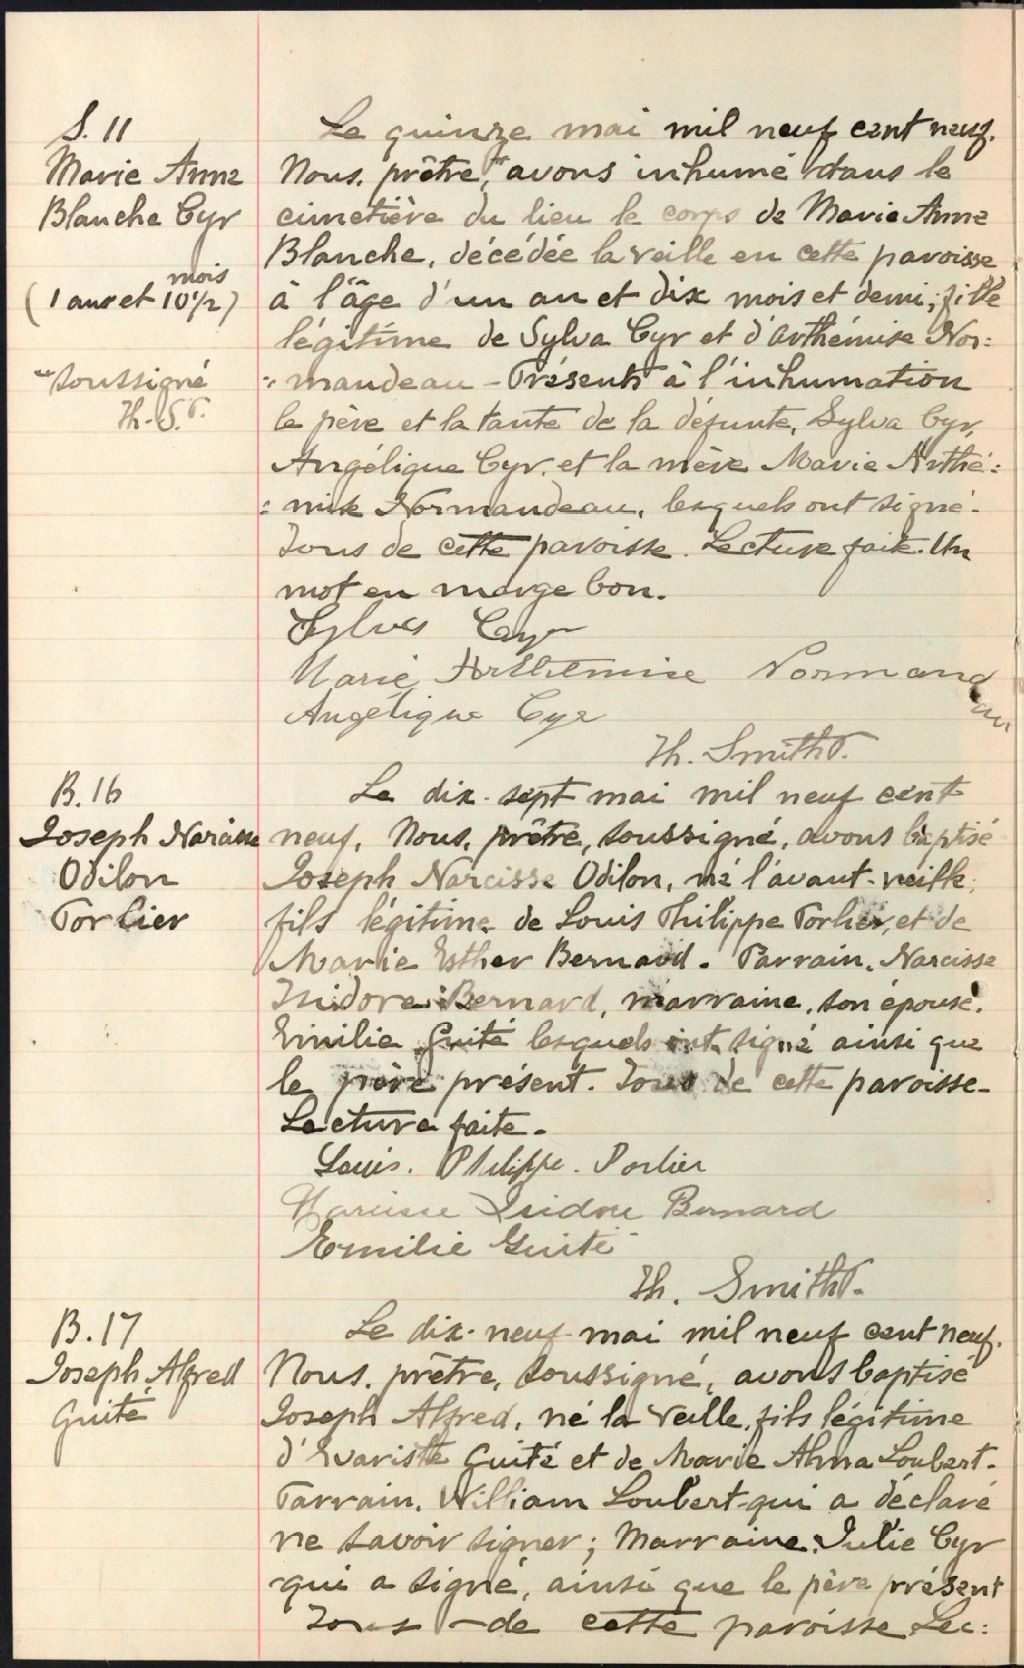 S. 11
Marie Anne
Blanche Cyr
mois
(1 an et 10 1/2)
"soussigné
Th. S. P.
Le quinze mai mil neuf cent neuf.
Nous, prêtre," avons inhumé dans le
cimetière du lieu le corps de Marie Anne
Blanche, décédée la veille en cette paroisse
à l'âge d'un an et dix mois et demi, fille
légitime de Sylva Cyr et d'Arthémise Nor=
=mandeau - Présents à l'inhumation
le père et la tante de la défunte, Sylva Cyr,
Angélique Cyr, et la mère Marie Arthé=
=mise Normandeau, lesquels ont signé.
Tous de cette paroisse. Lecture faite. Un
mot en marge bon.
Sylva Cyr
Marie Arthemise Normandeau
Angélique Cyr
Th. Smith P.
B. 16
Joseph Narcisse
Odilon
Porlier
Le dix-sept mai mil neuf cent
neuf, Nous, prêtre, soussigné, avons baptisé
Joseph Narcisse Odilon, né l'avant-veille,
fils légitime de Louis Philippe Porlier, et de
Marie Esther Bernard. Parrain, Narcisse
Isidore Bernard, marraine, son épouse,
Emilie Guité lesquels ont signé ainsi que
le père présent. Tous de cette paroisse.
Lecture faite.
Louis. Philippe. Porlier
Narcisse Isidore Bernard
Emilie Guité
Th. Smith P.
B. 17
Joseph Alfred
Guité
Le dix-neuf mai mil neuf cent neuf.
Nous, prêtre, soussigné, avons baptisé
Joseph Alfred, né la veille, fils légitime
d'Evariste Guité et de Marie Alma Loubert.
Parrain, William Loubert qui a déclaré
ne savoir signer; Marraine, Julie Cyr
qui a signé, ainsi que le père présent
Tous de cette paroisse Lec=